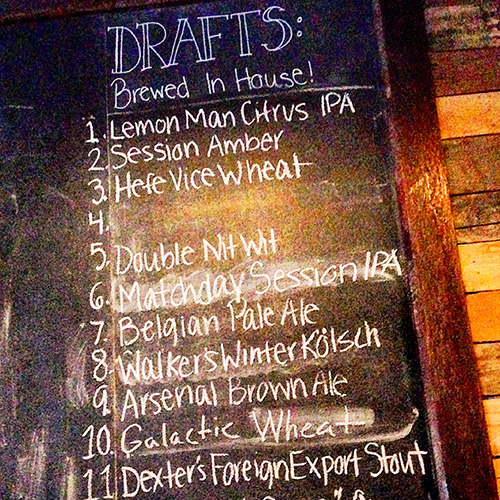 DRAFTS:
Brewed In House!
1. Lemon Man Citrus IPA
2. Session Amber
3. Hefe Vice Wheat
4.
5. Double Nit Wit
6. Matchday Session IPA
7. Belgian Pale Ale
8. Walker's Winter Kölsch
9. Arsenal Brown Ale
10. Galactic Wheat
11. Dexter's Foreign Export Stout